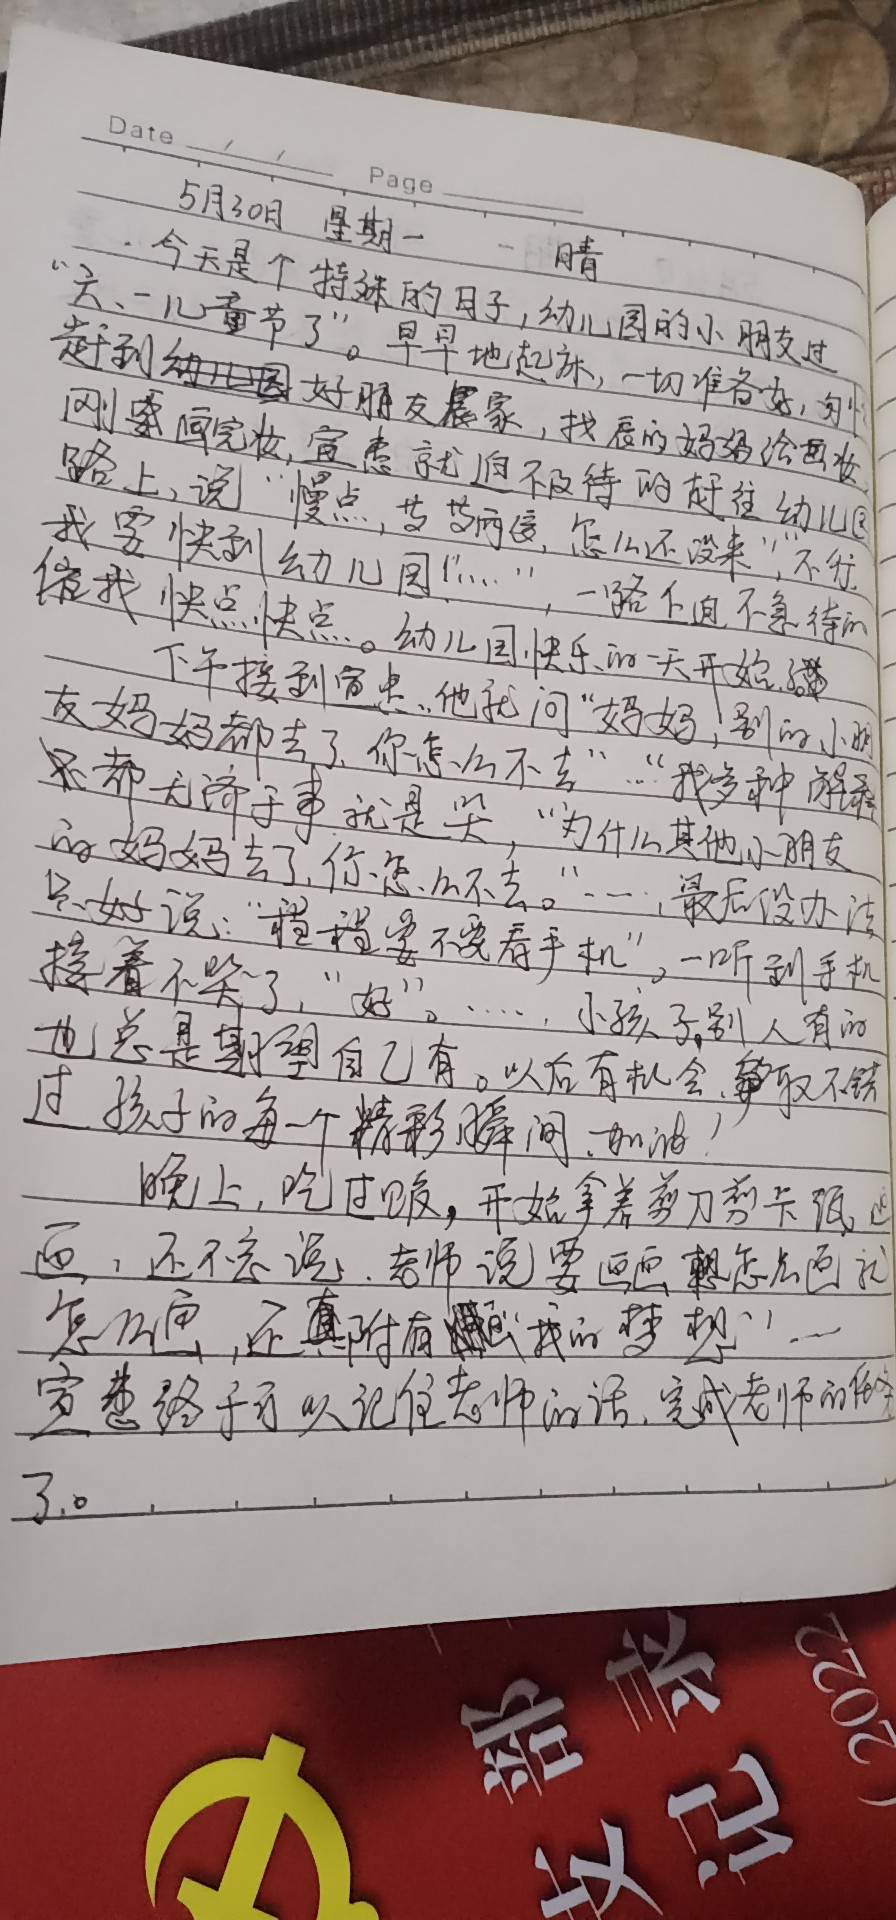 Date / / Page
5月30日 星期一 晴
今天是个特殊的日子,幼儿园的小朋友过
"六、一儿童节了"。早早地起床,一切准备好,匆忙
赶到好朋友晨家,找晨的妈妈给画妆
刚要画完妆,宣惠就迫不及待的赶往幼儿园
路上,说"慢点,节节两倍,怎么还没来","不行
我要快到幼儿园"……",一路上迫不急待的
催我快点,快点。幼儿园快乐的一天开始
下午接到宣惠,他就问"妈妈,别的小朋
友妈妈都去了,你怎么不去""我多种解释
都无济于事,就是哭,"为什么其他小朋友
的妈妈去了,你怎么不去。"……,最后没办法
只好说:"程程要不要看手机"。一听到手机
接着不哭了,"好"。……,小孩子,别人有的
也总是期望自己有。以后有机会,争取不错
过孩子的每一个精彩瞬间,加油!
晚上,吃过饭,开始拿着剪刀剪卡纸,
画,还不忘说,老师说要画画,想怎么画就
怎么画,还真附有"我的梦想"……
宣惠终于可以记住老师的话,完成老师的任务
了。
部 录
支 记
(2022